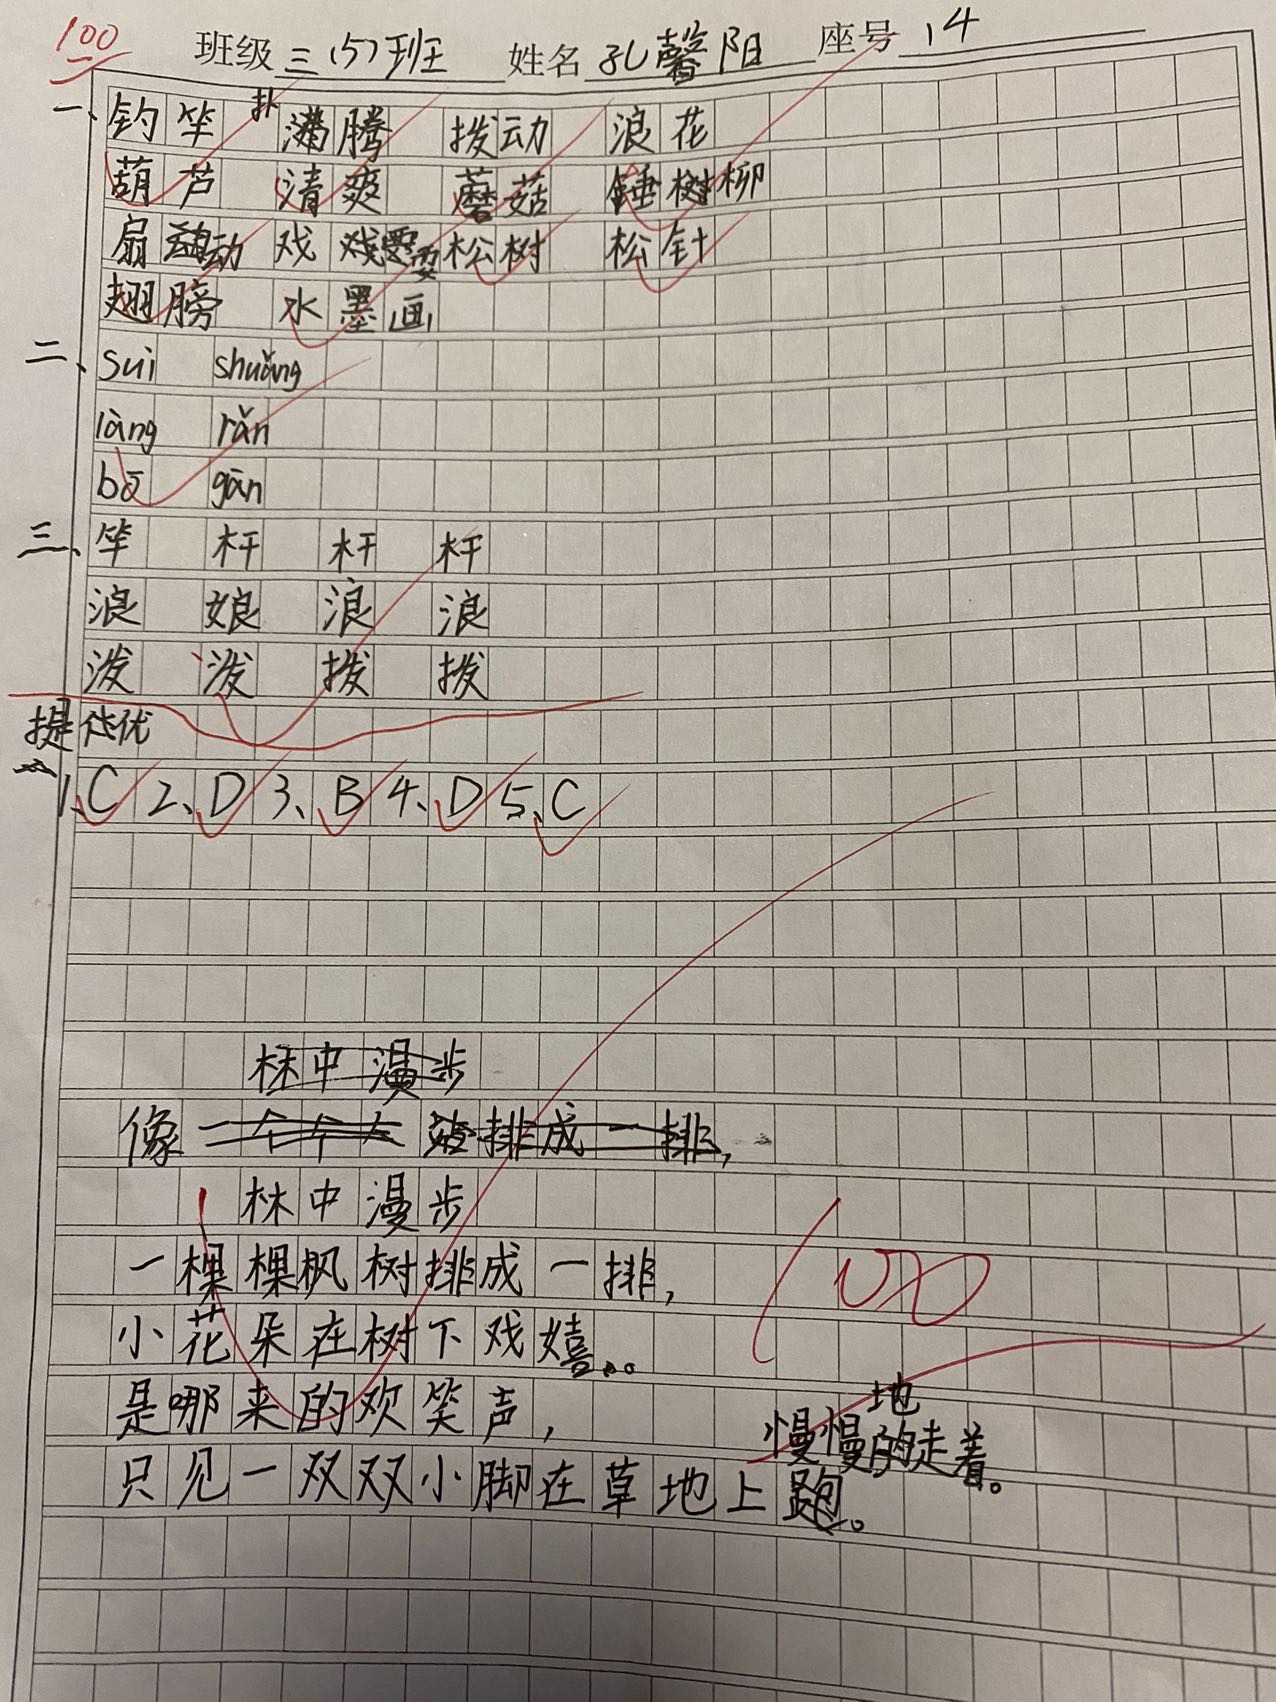 100
班级 三(5)班 姓名 孔馨阳 座号 14
一、钓竿 扑腾 拨动 浪花
葫芦 清爽 蘑菇 树柳
扇动 戏耍 松树 松针
翅膀 水墨画
二、sui shuǎng
làng rǎn
bō gān
三、竿 杆 杆 杆
浪 娘 浪 浪
泼 泼 拨 拨
提优
1、C 2、D 3、B 4、D 5、C
林中漫步
像一个个人站排成一排,
林中漫步
一棵棵枫树排成一排,
小花朵在树下戏嬉。
100
是哪来的欢笑声,
只见一双双小脚在草地上慢慢地走着。